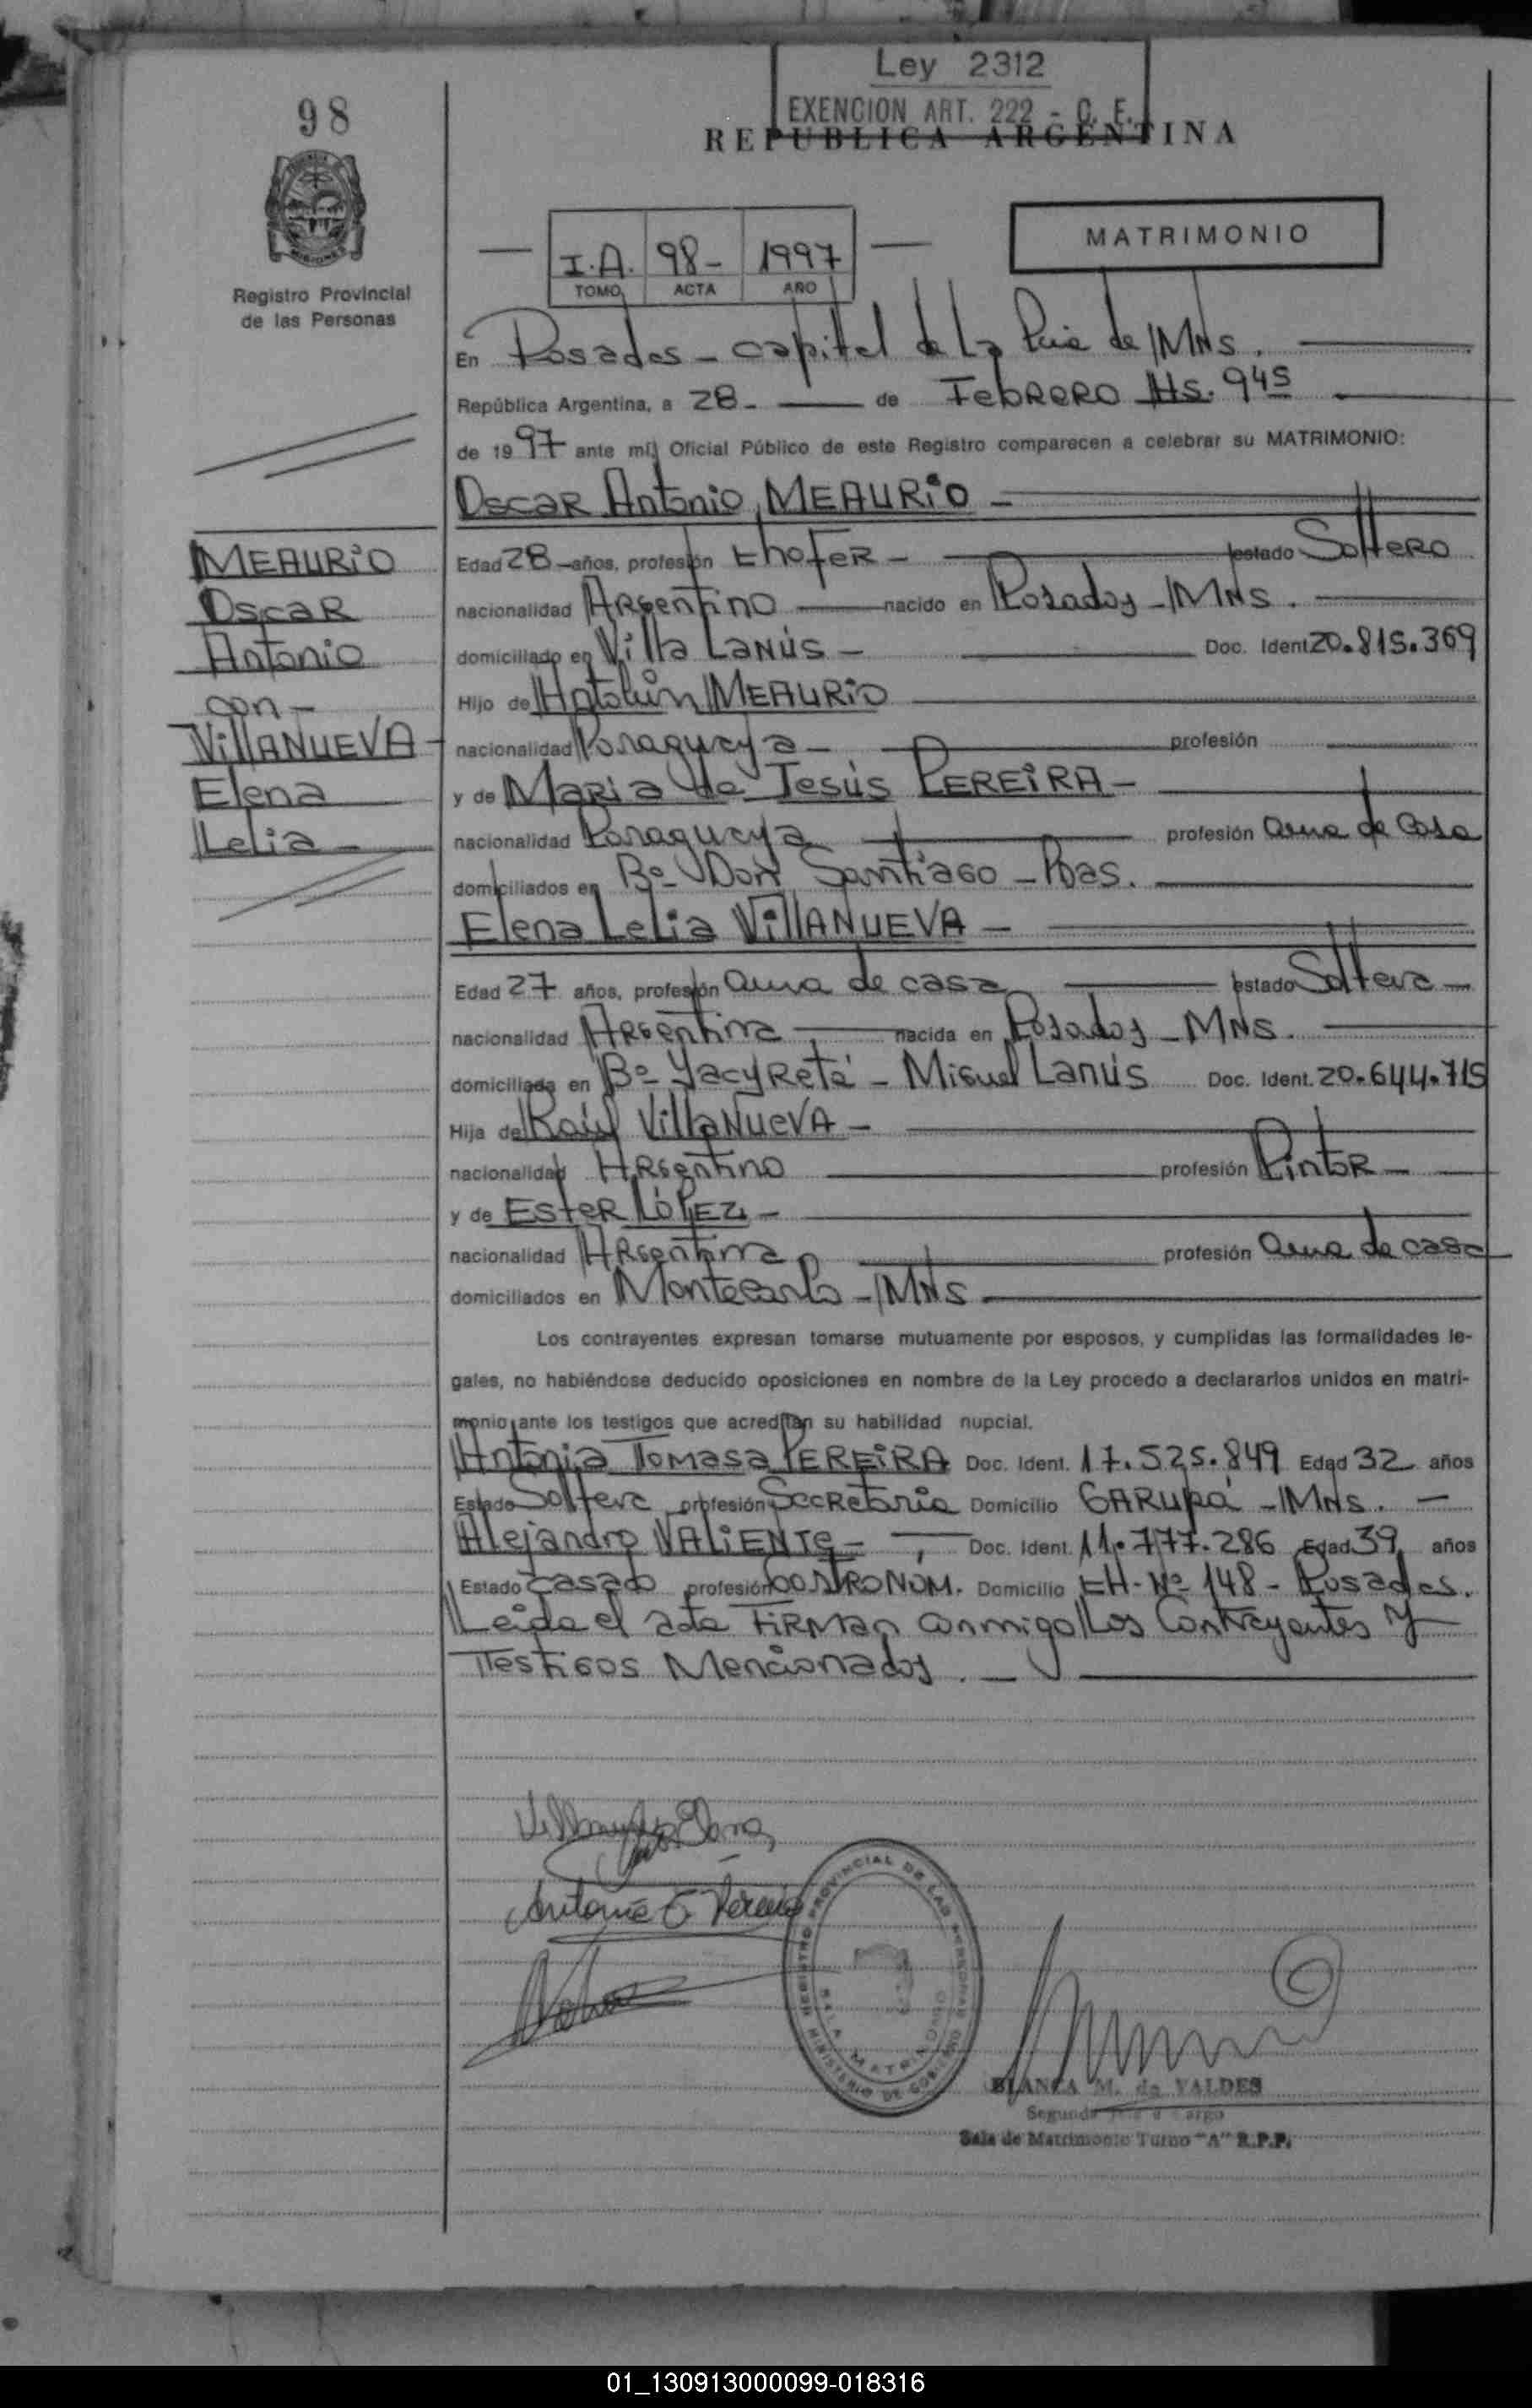 Ley 2312
EXENCION ART. 222 - C. F.
98
REPUBLICA ARGENTINA
MATRIMONIO
I.A. 98- 1997
TOMO ACTA AÑO
Registro Provincial
de las Personas
En Posadas - capital de La Pcia de MNS.
República Argentina, a 28- de FebRERO Hs. 945
de 1997 ante mí, Oficial Público de este Registro comparecen a celebrar su MATRIMONIO:
OscaR Antonio MEAURiO -
MEAURiO
OscaR
Antonio
con -
VillANUEVA -
Elena
Lelia -
Edad 28 - años, profesión chofeR - estado SolteRO
nacionalidad ARgentino nacido en Posadas - MNS.
domiciliado en Villa LaNús - Doc. Ident. 20.815.369
Hijo de MEAURiO
nacionalidad Paraguaya - profesión
y de MaRia de Jesús PEREiRA -
nacionalidad Paraguaya profesión ama de casa
domiciliados en Bº- Don Santiago - Pdas.
Elena Lelia VillANUEVA -
Edad 27 años, profesión ama de casa estado Soltera -
nacionalidad ARgentina nacida en Posadas - MNS.
domiciliada en Bº- YacyRetá - Miguel Lanús Doc. Ident. 20.644.715
Hija de Raúl VillaNUEVA -
nacionalidad ARgentino profesión PintoR -
y de EsteR LóPEZ -
nacionalidad ARgentina profesión ama de casa
domiciliados en Montecarlo - MNS -
Los contrayentes expresan tomarse mutuamente por esposos, y cumplidas las formalidades le-
gales, no habiéndose deducido oposiciones en nombre de la Ley procedo a declararlos unidos en matri-
monio, ante los testigos que acreditan su habilidad nupcial.
Antonia Tomasa PEREiRA Doc. Ident. 17.525.849 Edad 32 años
Estado Soltera profesión SecRetaria Domicilio GARupá - MNS. -
Alejandro VALiENTe - Doc. Ident. 11.777.286 Edad 39 años
Estado casado profesión GASTRONOM. Domicilio CH- Nº 148 - Posadas.
Leida el acta FiRMan conmigo Los Contrayentes y
Testigos Mencionados. -
Villanueva Elena
REGISTRO PROVINCIAL DE LAS PERSONAS
SALA MATRIMONIO
MINISTERIO DE GOBIERNO
BLANCA M. de VALDES
Segundo Jefe a Cargo
Sala de Matrimonio Turno "A" R.P.P.
01_130913000099-018316